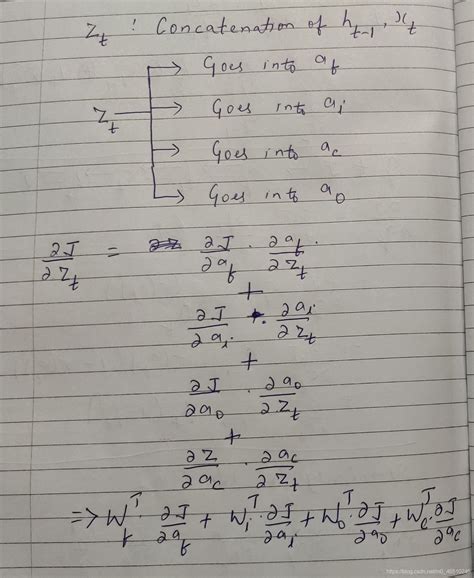 Z_t : Concatenation of h_{t-1}, x_t
→ Goes into a_f
→ Goes into a_i
Z_t
→ Goes into a_c
→ Goes into a_0
∂J/∂Z_t = ∂J/∂a_f · ∂a_f/∂Z_t
+
∂J/∂a_i · ∂a_i/∂Z_t
+
∂J/∂a_0 · ∂a_0/∂Z_t
+
∂Z/∂a_c · ∂a_c/∂Z_t
=> W_f^T · ∂J/∂a_f + W_i^T · ∂J/∂a_i + W_0^T · ∂J/∂a_0 + W_c^T · ∂J/∂a_c